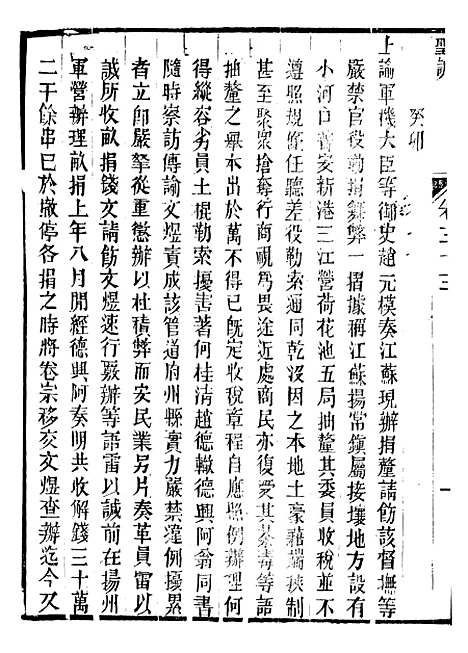 聖訓
卷三十三
癸卯
上諭軍機大臣等御史趙元模奏江蘇現辦捐釐請飭該督撫等
嚴禁官役勒捐舞弊一摺據稱江蘇揚常鎮屬接壤地方設有
小河口普安新港三江營荷花池五局抽釐其委員收稅並不
遵照規條任聽差役勒索通同乾沒因之本地土豪藉端挾制
甚至聚眾搶奪行商視為畏途近處商民亦復受其荼毒等語
抽釐之舉本出於萬不得已旣定收稅章程自應照例辦理何
得縱容劣員土棍勒索擾害著何桂清趙德轍德興阿翁同書
隨時察訪傳諭文煜責成該管道府州縣實力嚴禁濫例擾累
者立卽嚴拏從重懲辦以杜積弊而安民業另片奏革員雷以
諴所收畝捐錢文請飭文煜速行嚴辦等語雷以諴前在揚州
軍營辦理畝捐上年八月間經德興阿奏明共收解錢三十萬
二千餘串已於撤停各捐之時將卷宗移交文煜查辦迄今又